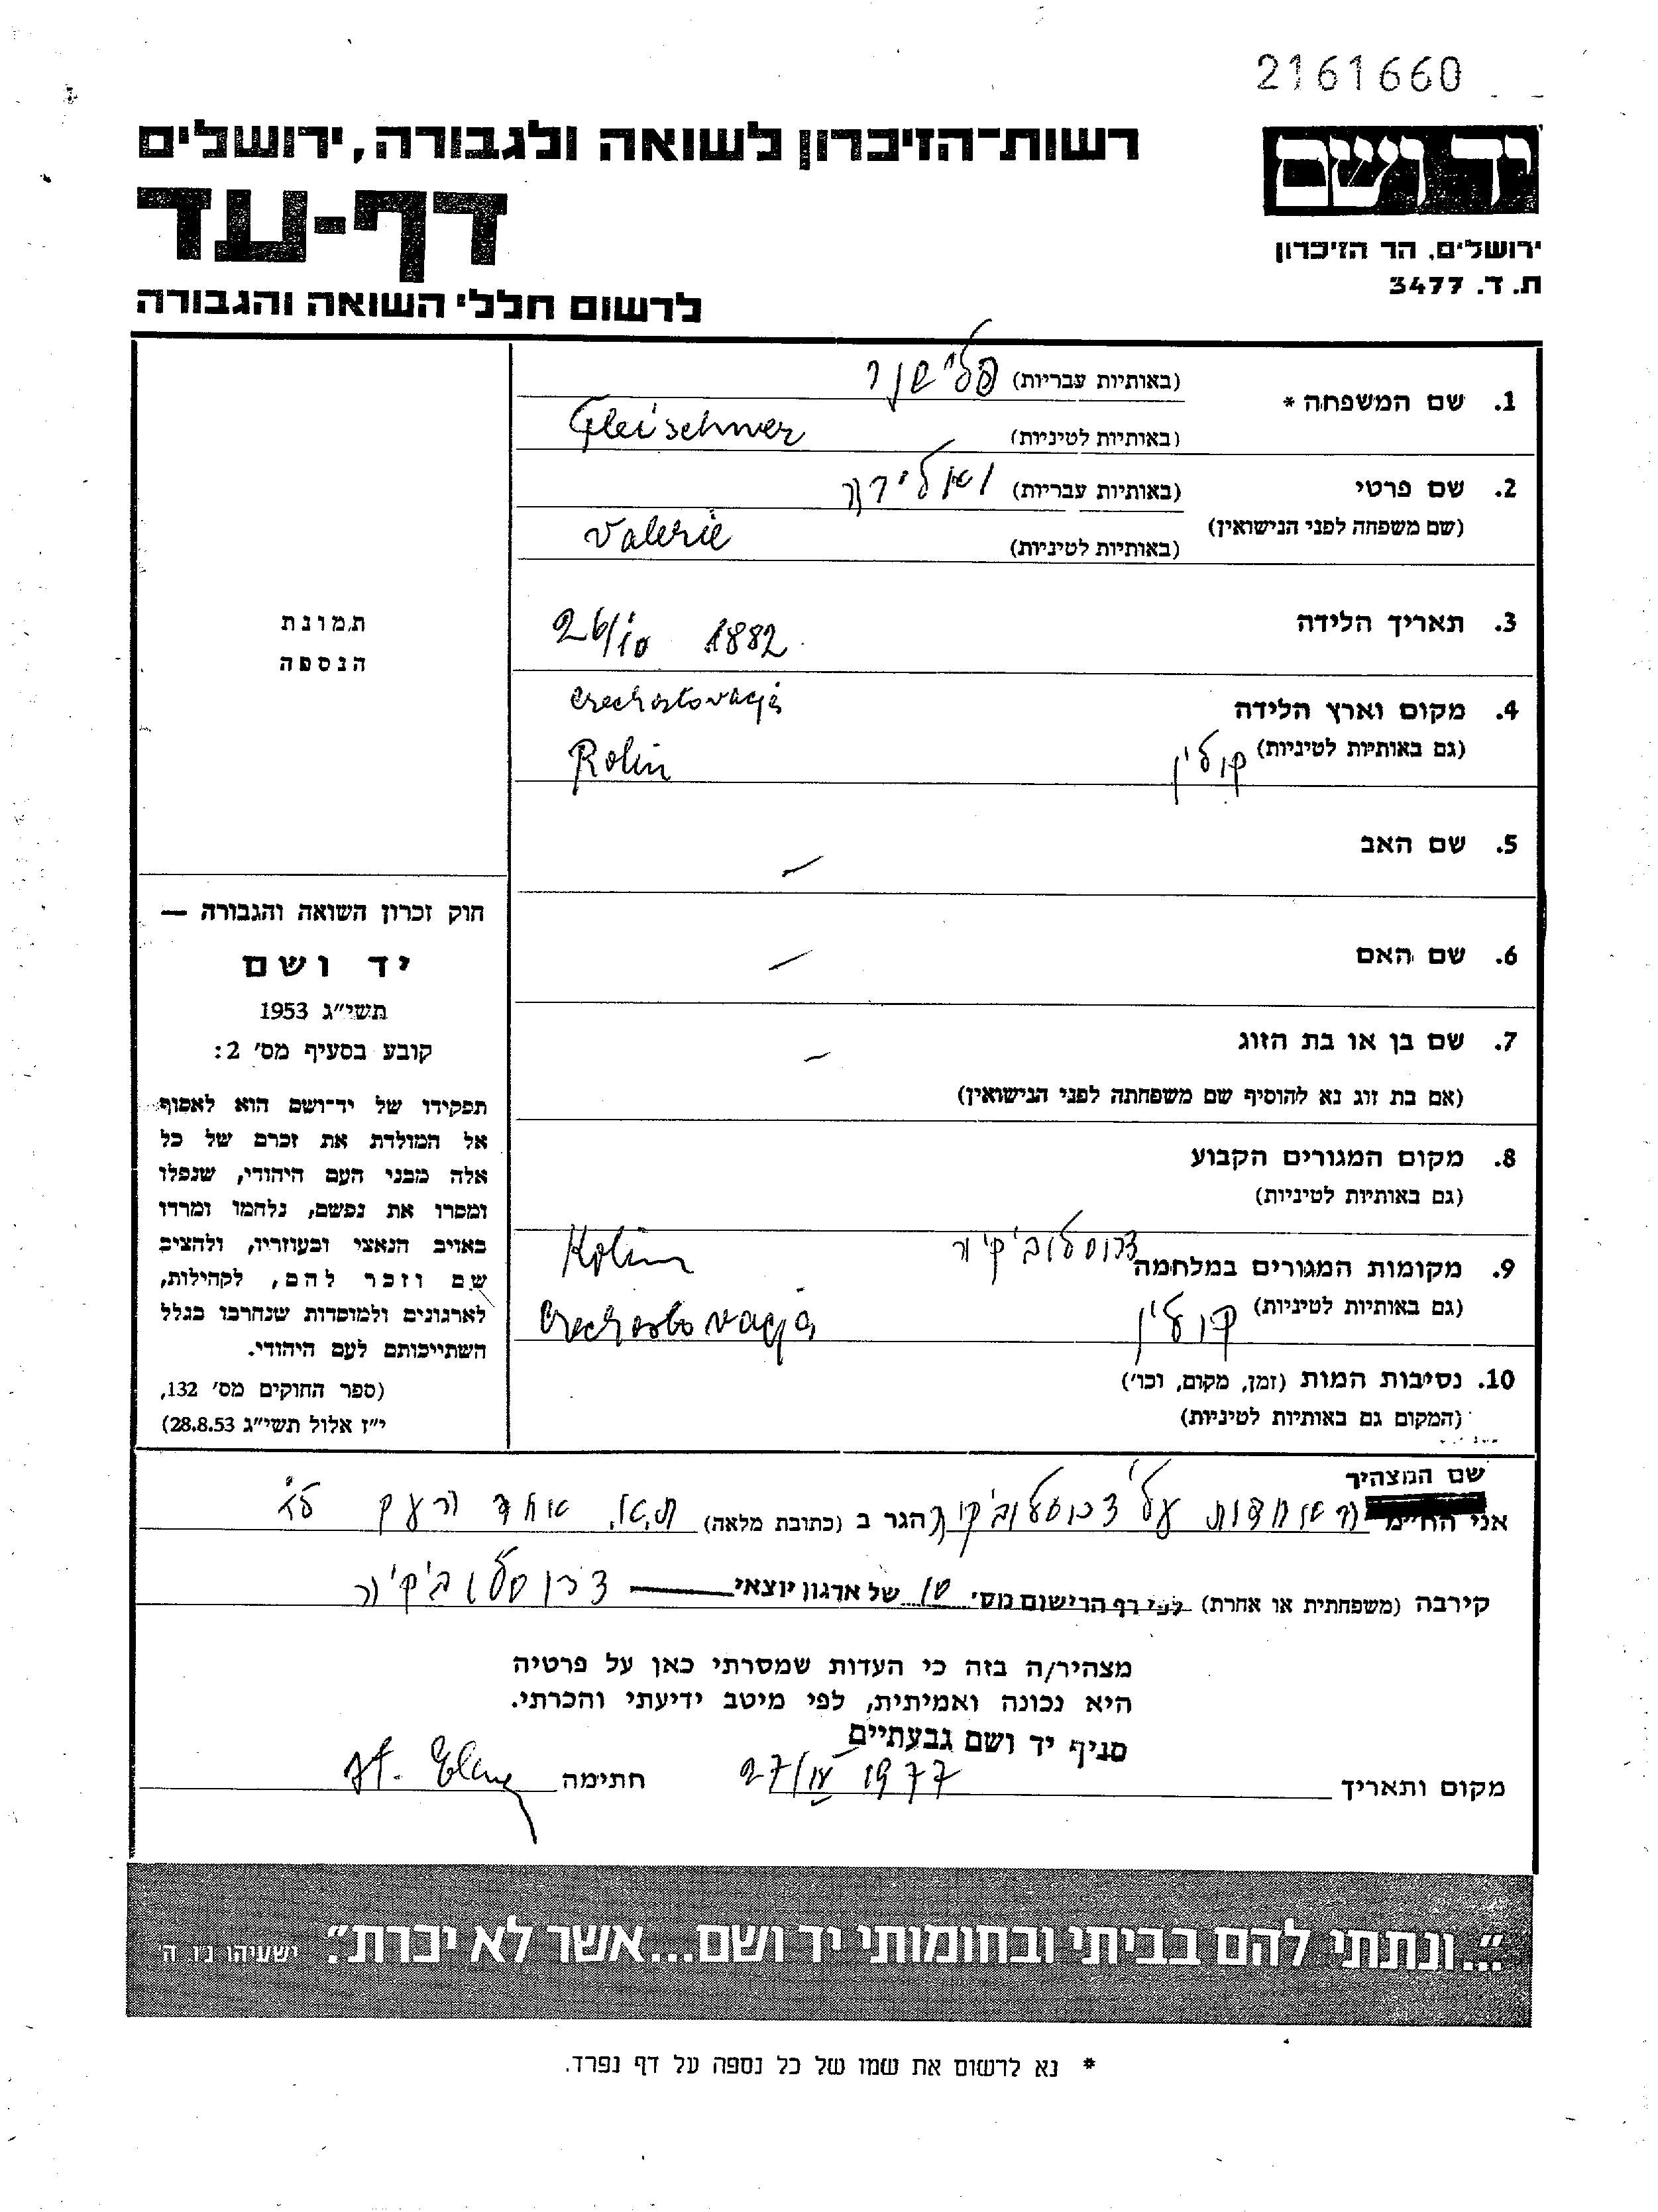 2161660
יד ושם
רשות־הזיכרון לשואה ולגבורה, ירושלים
דף-עד
ירושלים, הר הזיכרון
ת. ד. 3477
לרשום חללי השואה והגבורה
1. שם המשפחה * (באותיות עבריות) פלישנר
(באותיות לטיניות) Fleischner
2. שם פרטי (באותיות עבריות) ואלירה
(שם משפחה לפני הנישואין) (באותיות לטיניות) Valerie
3. תאריך הלידה 26/10 1882
4. מקום וארץ הלידה Czechoslovacja
(גם באותיות לטיניות) קולין Kolin
5. שם האב –
6. שם האם –
7. שם בן או בת הזוג –
(אם בת זוג נא להוסיף שם משפחתה לפני הנישואין)
8. מקום המגורים הקבוע
(גם באותיות לטיניות)
9. מקומות המגורים במלחמה Kolin
(גם באותיות לטיניות) קולין Czechoslovacja
10. נסיבות המות (זמן, מקום, וכו')
(המקום גם באותיות לטיניות)
תמונת
הנספה
חוק זכרון השואה והגבורה —
יד ושם
תשי״ג 1953
קובע בסעיף מס׳ 2:
תפקידו של יד־ושם הוא לאסוף
אל המולדת את זכרם של כל
אלה מבני העם היהודי, שנפלו
ומסרו את נפשם, נלחמו ומרדו
באויב הנאצי ובעוזריו, ולהציב
שם וזכר להם, לקהילות,
לארגונים ולמוסדות שנחרבו בגלל
השתייכותם לעם היהודי.
(ספר החוקים מס׳ 132,
י״ז אלול תשי״ג 28.8.53)
שם המצהיר
אני הח״מ הגר ב (כתובת מלאה) ת.א. אחד העם
קירבה (משפחתית או אחרת) לפי דף הרישום מס׳ של ארגון יוצאי
מצהיר/ה בזה כי העדות שמסרתי כאן על פרטיה
היא נכונה ואמיתית, לפי מיטב ידיעתי והכרתי.
סניף יד ושם גבעתיים
מקום ותאריך 27/IV 1977 חתימה
״...ונתתי להם בביתי ובחומותי יד ושם...אשר לא יכרת״. ישעיהו נ״ו, ה׳
* נא לרשום את שמו של כל נספה על דף נפרד.